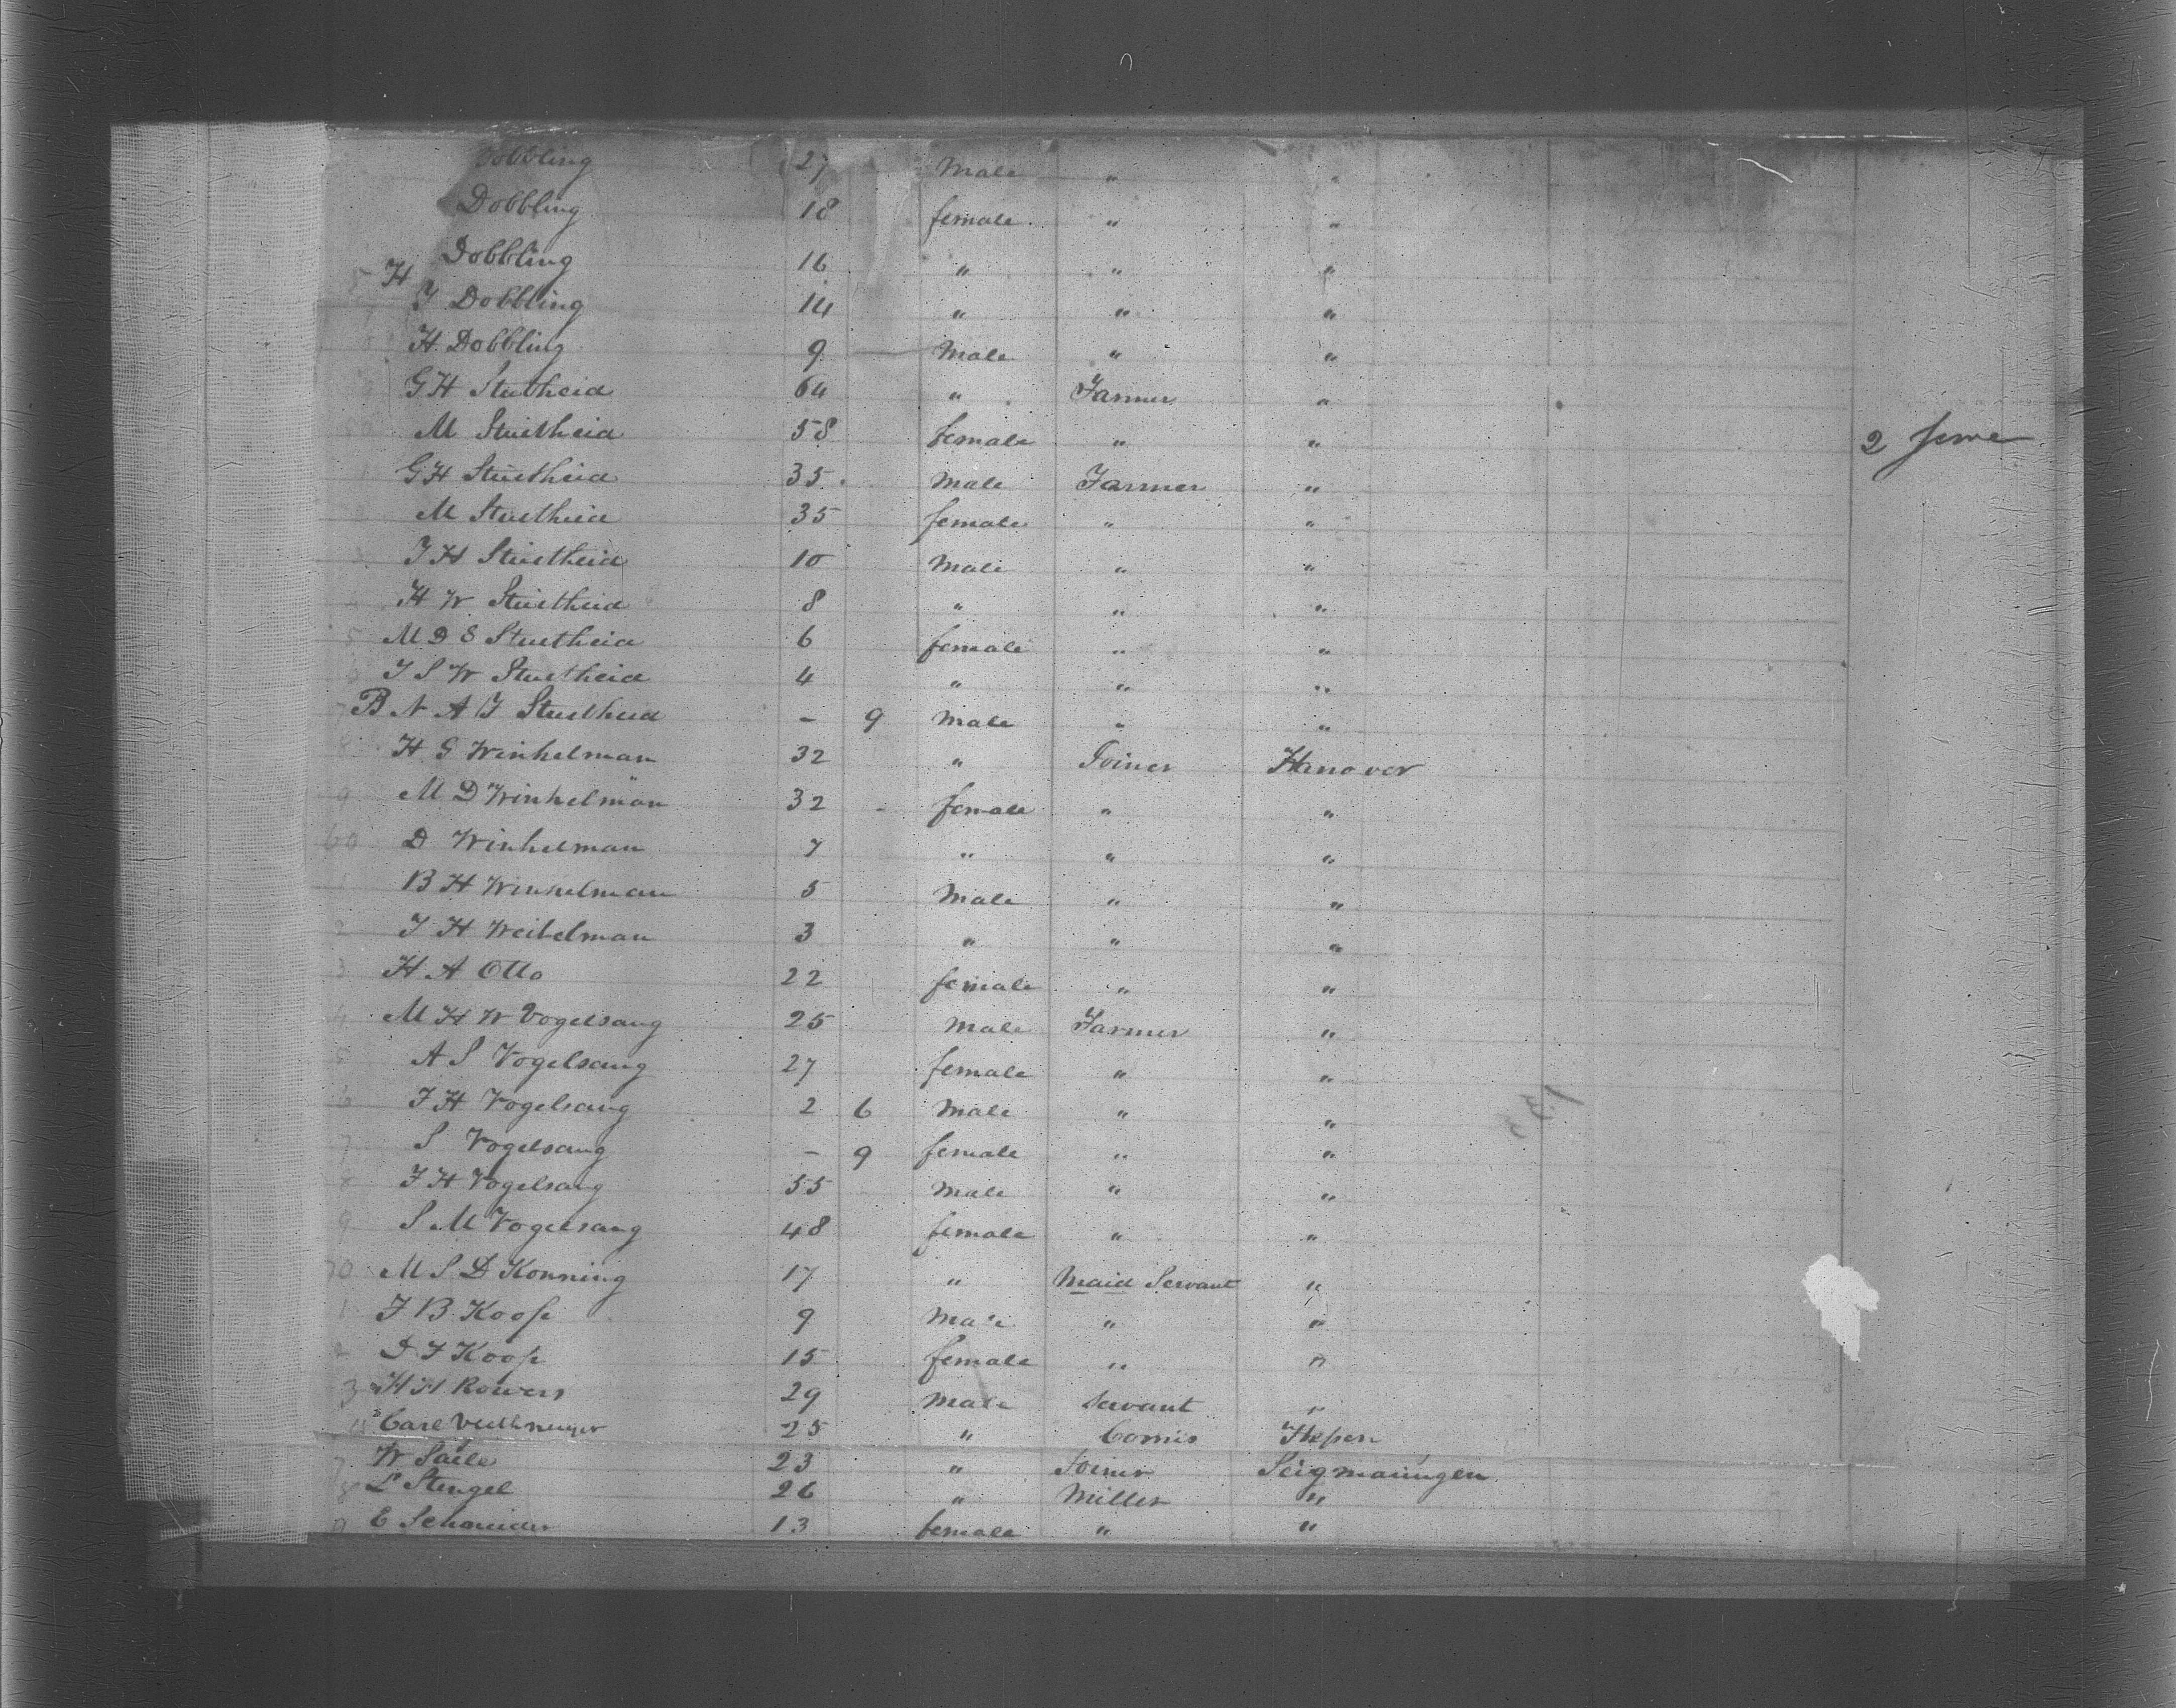 Dobbling 27 Male " "
Dobbling 18 female " "
H Dobbling 16 " " "
J Dobbling 14 " " "
H. Dobbling 9 Male " "
G H Stustheid 64 " Farmer "
M Stustheid 58 female " " 2
G H Stustheid 35 Male Farmer "
M Stustheid 35 female " "
J H Stustheid 10 Male " "
H W Stustheid 8 " " "
5 M D E Stustheid 6 female " "
6 J S W Stustheid 4 " " "
7 B N A J Stustheid - 9 Male " "
8 H G Winkelman 32 " Joiner Hanover
9 M D Winkelman 32 female " "
60 D Winkelman 7 " " "
1 B H Winkelman 5 Male " "
2 J H Weitelman 3 " " "
3 H A Otto 22 female " "
4 M H W Vogelsang 25 Male Farmer "
5 A S Vogelsang 27 female " "
6 J H Vogelsang 2 6 Male " "
7 S Vogelsang - 9 female " "
8 J H Vogelsang 55 Male " "
9 S M Vogelsang 48 female " "
70 M S D Konning 17 " Maid Servant "
1 J B Koop 9 Male " "
2 D J Koop 15 female " "
3 H H Rowers 29 Male Servant "
Carl 25 " Comis Hessen
7 W Saile 23 " Joiner Seigmaringen
8 L Stengel 26 " Miller "
9 E Schneider 13 female " "